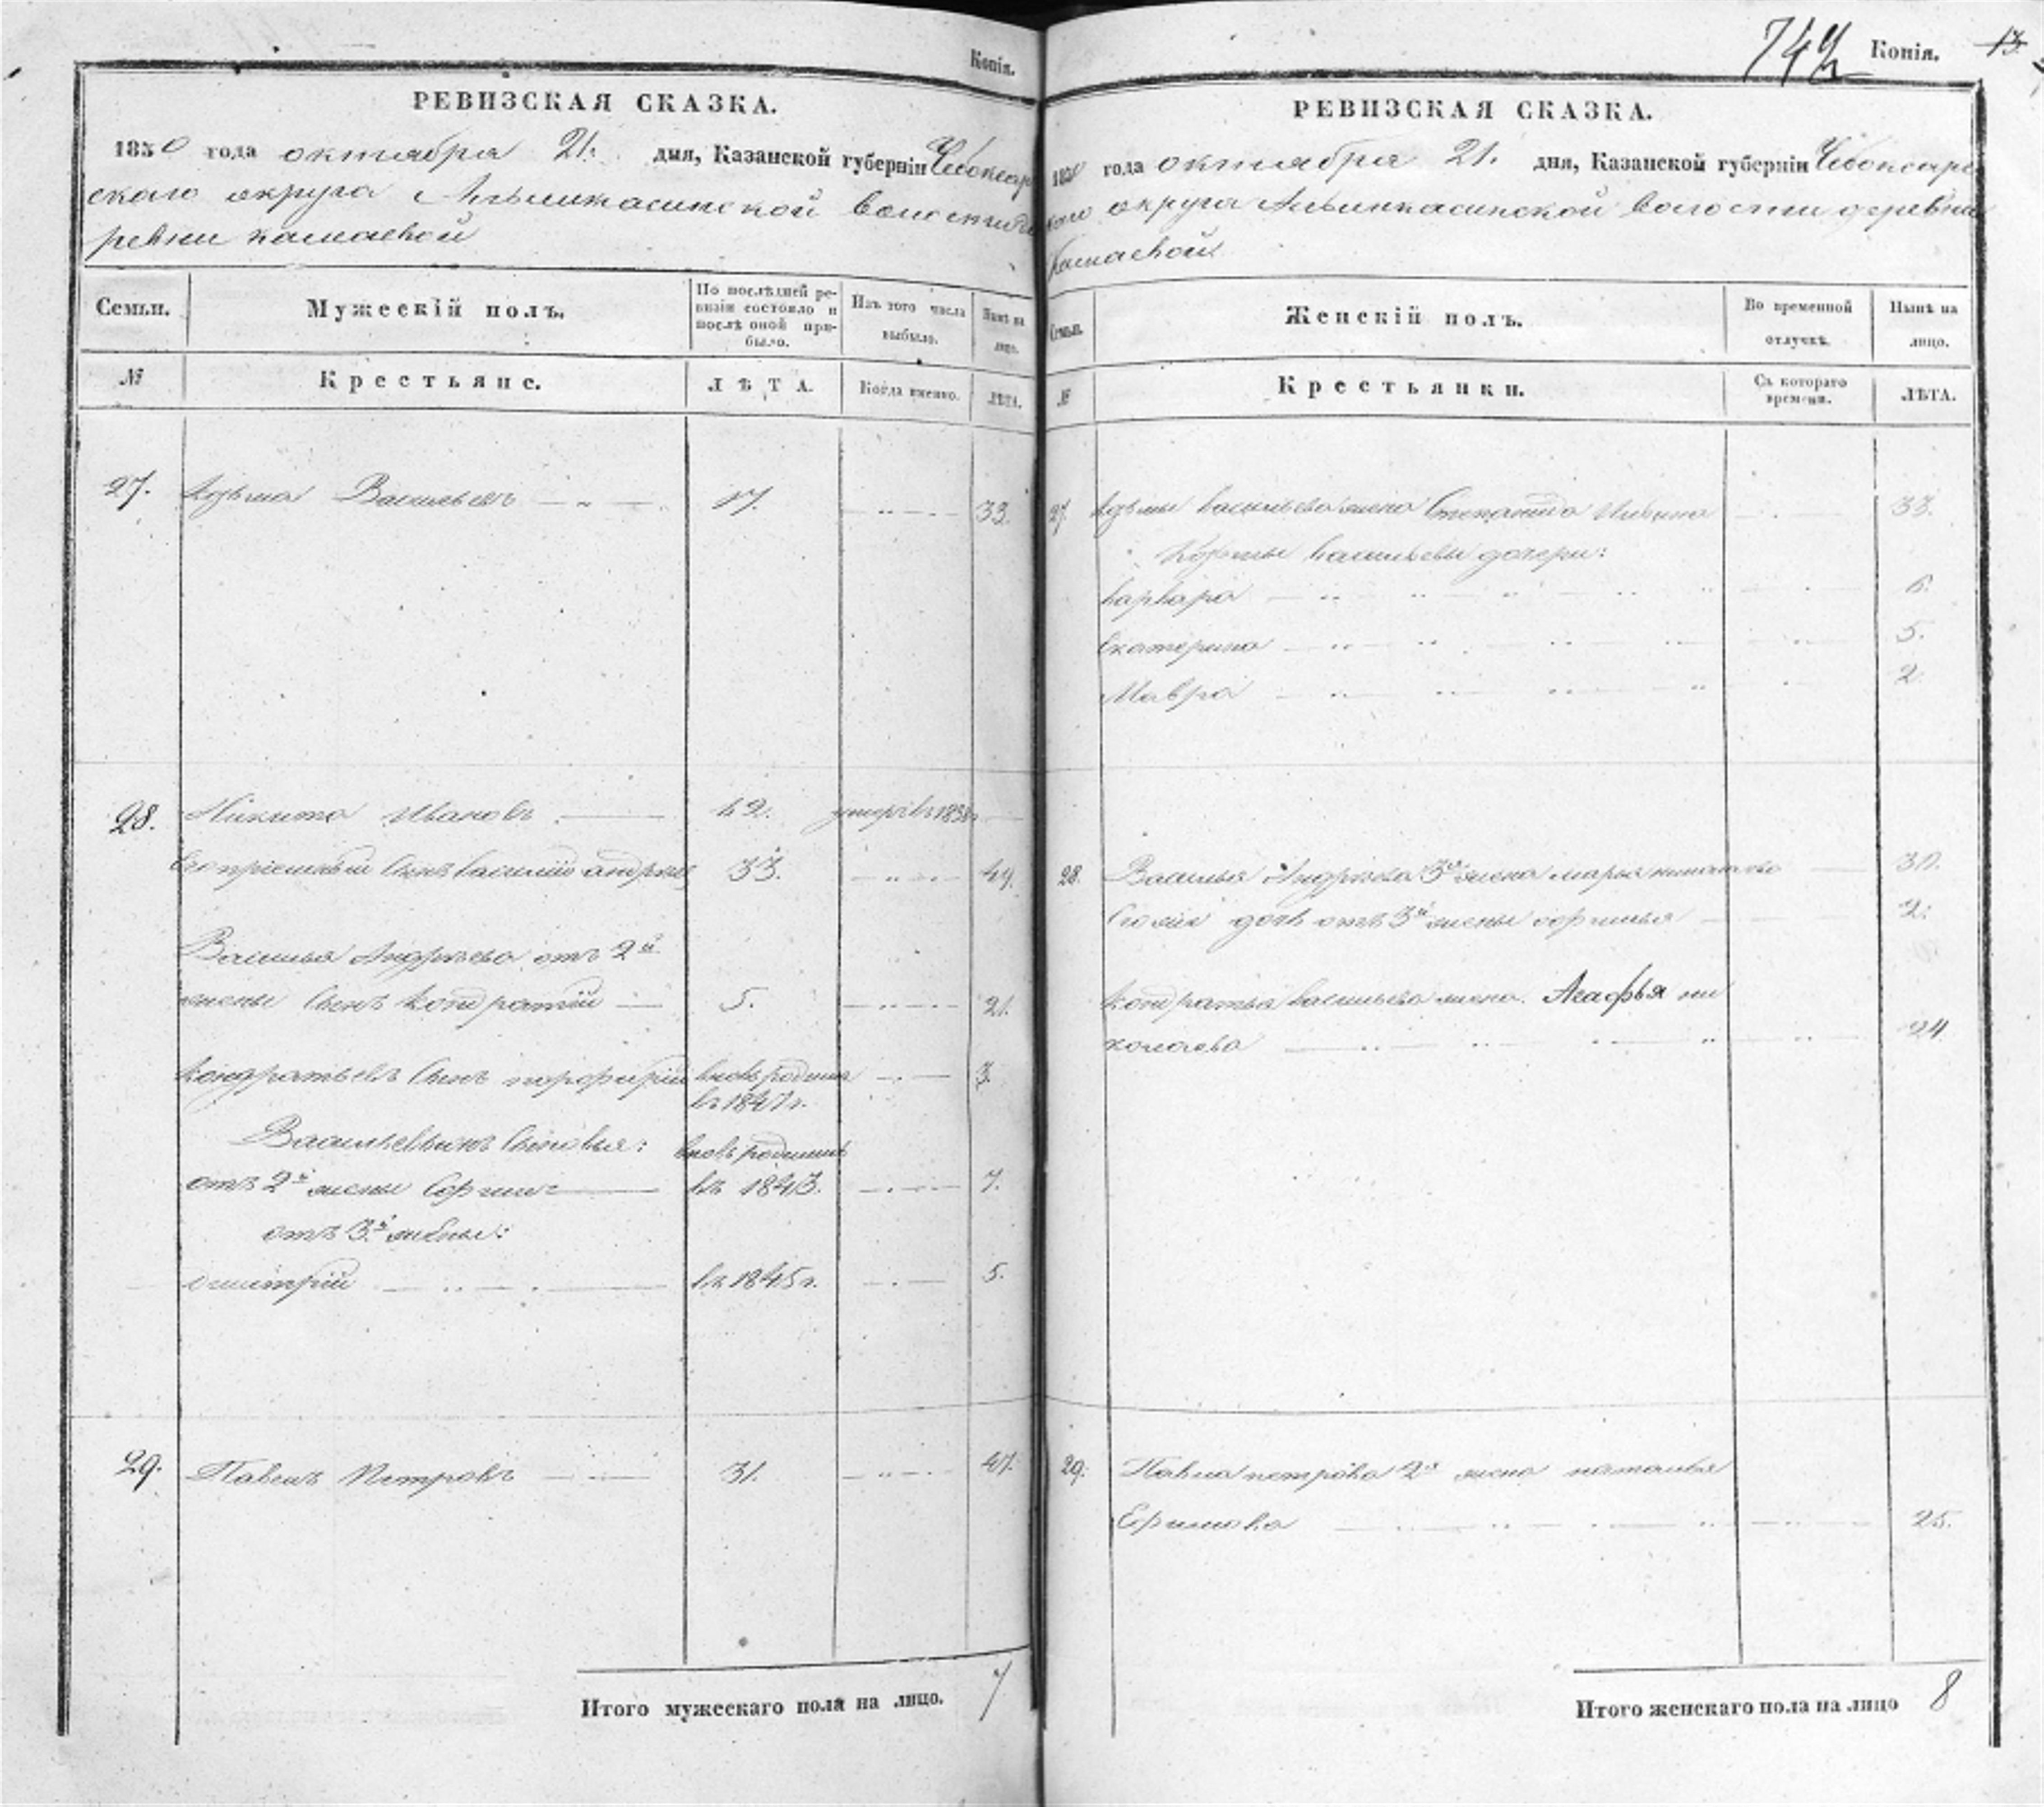 Копія.
РЕВИЗСКАЯ СКАЗКА.
1850 года октября 21. дня, Казанской губерніи Чебоксар
скаго округа волости де
ревни Камаевой
Семьи.
Мужескій полъ.
По послѣдней ре-
визіи состояло и
послѣ оной при-
было.
Изъ того числа
выбыло.
Нынѣ на
лицо.
№
Крестьяне.
ЛѢТА.
Когда именно.
ЛѢТА.
27. Кузьма Васильевъ 17. 33.
28. Никита Ивановъ 42. умеръ въ 1838г
Его пріемный сынъ Василій Андреевъ 33. 49.
Василья Андреева отъ 2й
жены сынъ Кондратій 5. 21.
Кондратьевъ сынъ Порфирій вновь родился 3.
въ 1847г.
Васильевы сыновья: вновь родились
отъ 2й жены въ 1843. 7.
отъ 3й жены:
Дмитрій въ 1845г. 5.
29. Павелъ Петровъ 31. 47.
Итого мужескаго пола на лицо. 7
742 Копія. 13
РЕВИЗСКАЯ СКАЗКА.
1850 года октября 21. дня, Казанской губерніи Чебоксар
скаго округа волости деревни
Камаевой
Семьи.
Женскій полъ.
Во временной
отлучкѣ.
Нынѣ на
лицо.
№
Крестьянки.
Съ котораго
времени.
ЛѢТА.
27. Кузьмы Васильева жена Степанида 33.
Кузьмы Васильева дочери:
Варвара 6.
Екатерина 5.
Мавра 2.
28. Василья Андреева 3я жена Марья 30.
дочь отъ 3й жены 2.
Кондратья Васильева жена Агафья Ни
колаева 24
29. Павла Петрова 2я жена Наталья
Ефимова 25.
Итого женскаго пола на лицо 8